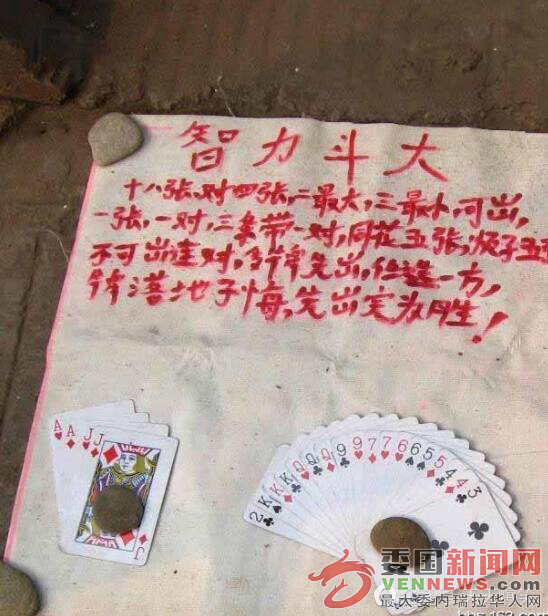 智力斗大
十八张,对四张,二最大,三最小,可出,
一张,一对,三条带一对,同花五张,子五
不可出连对,多牌先出,任选一方,
牌落地子悔,先出完为胜!
A A J J
J
2 K K K Q Q Q 9 9 7 7 6 6 5 5 4 4 3
委国新闻网
VENNEWS.COM
最大委内瑞拉华人网